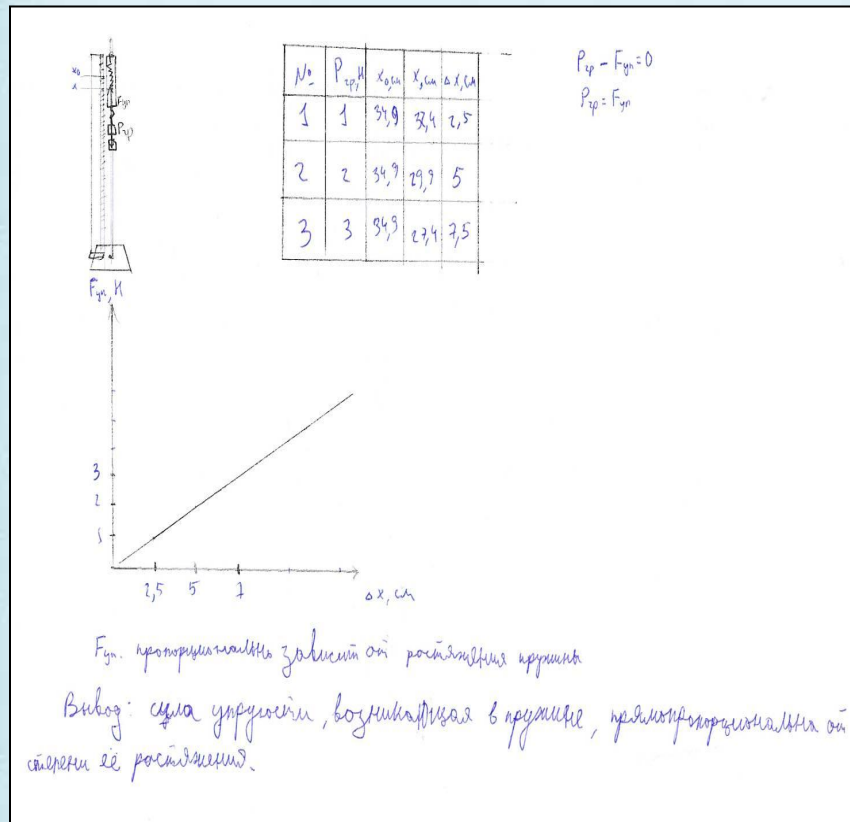 x₀
x
Fуп
Pгр
№ Pгр,Н x₀,см x,см Δx,см
1 1 34,9 32,4 2,5
2 2 34,9 29,9 5
3 3 34,9 27,4 7,5
Pгр - Fуп = 0
Pгр = Fуп
Fуп, Н
3
2
1
2,5 5 7
Δx, см
Fуп. пропорционально зависит от растяжения пружины
Вывод: сила упругости, возникающая в пружине, прямопропорциональна от
степени её растяжения.